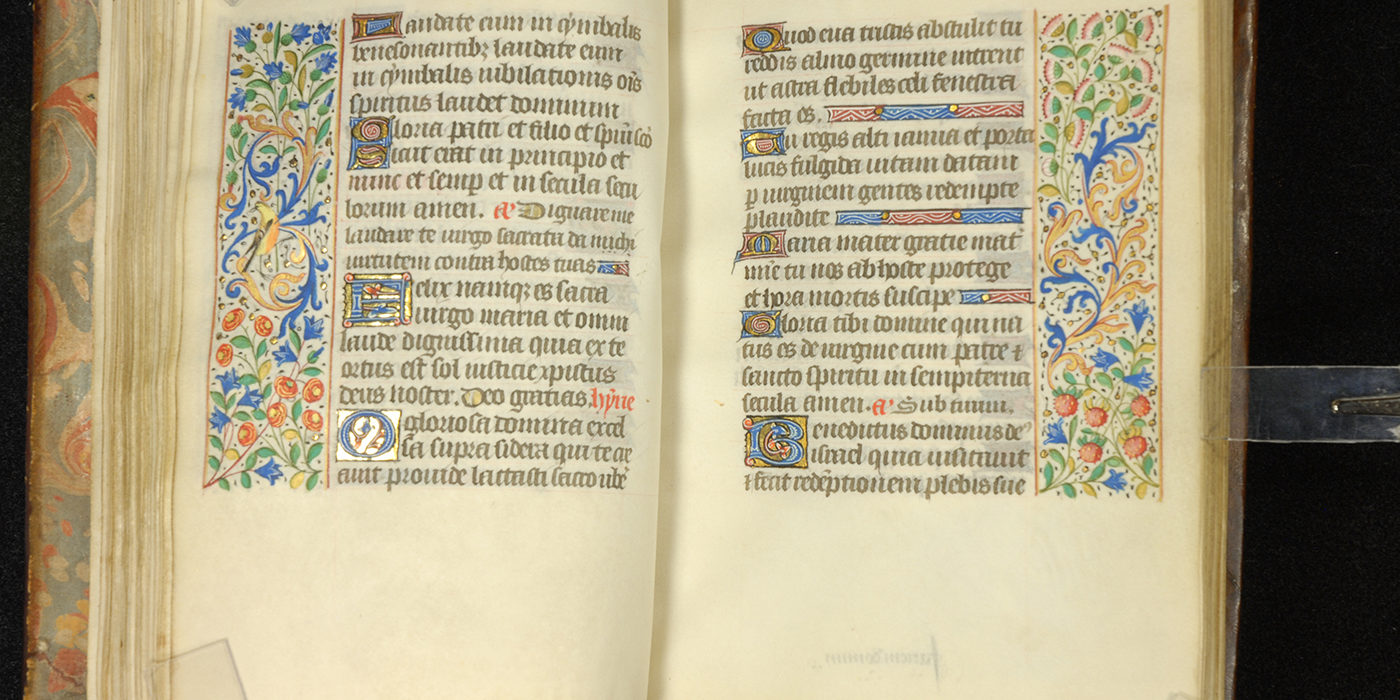 Laudate eum in cymbalis
benesonantibȝ laudate eum
in cymbalis iubilationis oīs
spiritus laudet dominum
Gloria patri et filio et spiritui scō
Sicut erat in principio et
nunc et semp et in secula secu
lorum amen. a' Dignare me
laudare te uirgo sacrata da michi
uirtutem contra hostes tuos
Felix namqȝ es sacra
uirgo maria et omni
laude dignissima quia ex te
ortus est sol iusticie xpistus
deus noster. Deo gratias. hỹne
O gloriosa domina excel
sa supra sidera qui te cre
auit prouide lactasti sacro ubē
Quod eua tristis abstulit tu
reddis almo germine intrent
ut astra flebiles celi fenestra
facta es.
Tu regis alti ianua et porta
lucis fulgida uitam datam
p uirginem gentes redempte
plaudite
Maria mater gratie mat'
mīe tu nos ab hoste protege
et hora mortis suscipe
Gloria tibi domine qui na
tus es de uirgine cum patre ⁊
sancto spiritu in sempiterna
secula amen. a' Sub tuum.
Benedictus dominus de'
israel quia uisitauit
⁊ fecit redēptionem plebis sue